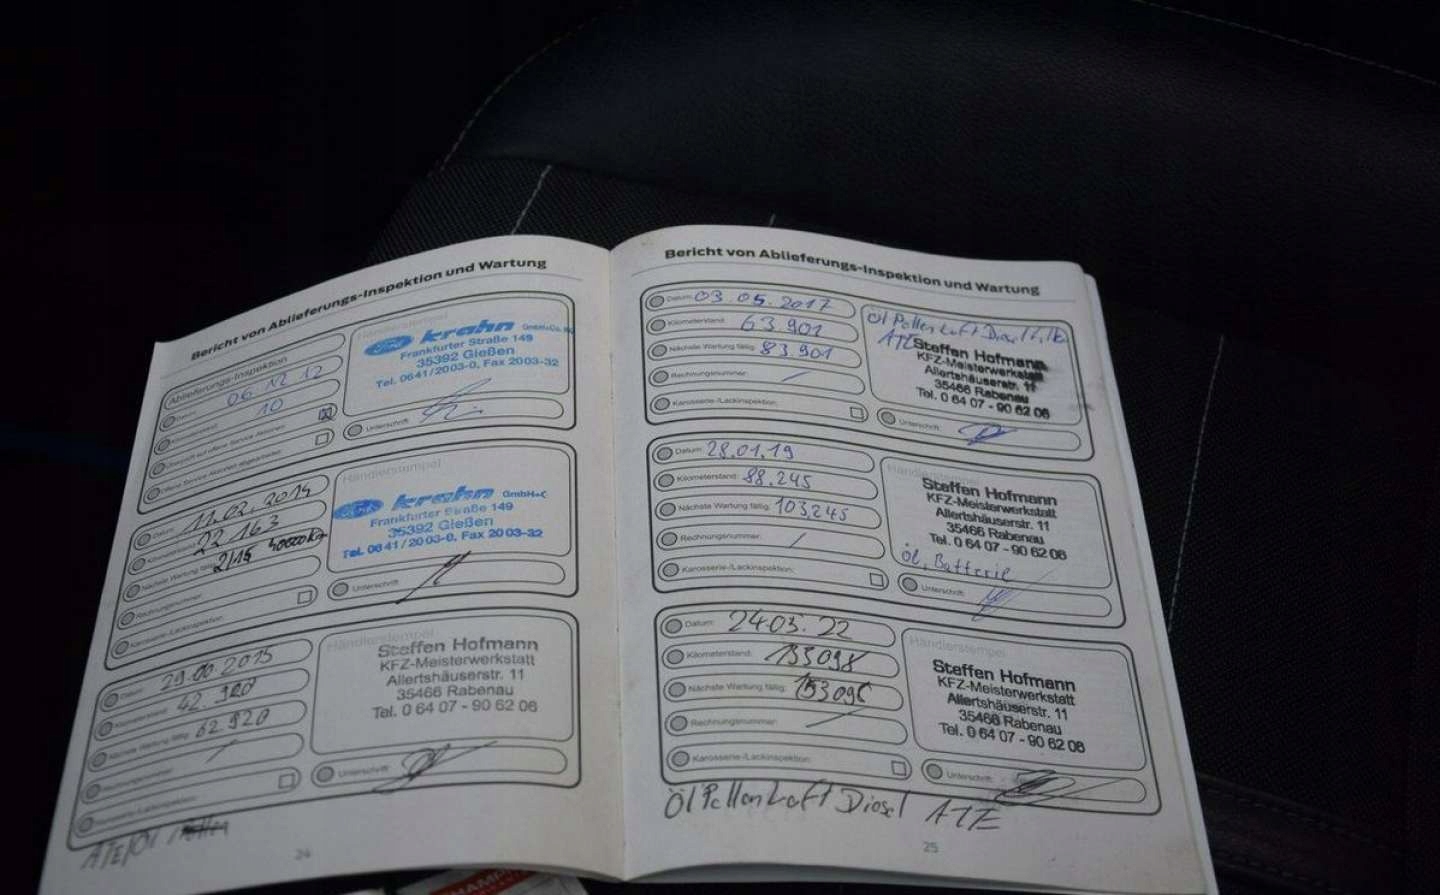 Bericht von Ablieferungs-Inspektion und Wartung
Ablieferungs-Inspektion
Datum: 06 12 12
Kilometerstand: 10
Händlerstempel
Ford krahn GmbH+Co. KG
Frankfurter Straße 149
35392 Gießen
Tel. 0641/2003-0, Fax 2003-32
Unterschrift:
Datum: 11.02.2014
Kilometerstand: 22 163
Nächste Wartung fällig: 2/15
Rechnungsnummer:
Karosserie-/Lackinspektion:
Händlerstempel
krahn GmbH+C
Frankfurter Straße 149
35392 Gießen
Tel. 0641/2003-0, Fax 2003-32
Unterschrift:
Datum: 2015
Kilometerstand: 42.920
Nächste Wartung fällig: 62 920
Rechnungsnummer:
Karosserie-/Lackinspektion:
Händlerstempel
Steffen Hofmann
KFZ-Meisterwerkstatt
Allertshäuserstr. 11
35466 Rabenau
Tel. 0 64 07 - 90 62 06
Unterschrift:
24
Bericht von Ablieferungs-Inspektion und Wartung
Datum: 03.05.2017
Kilometerstand: 63.901
Nächste Wartung fällig: 83.901
Rechnungsnummer: /
Karosserie-/Lackinspektion:
Öl Pollen Luft Diesel
ATE
Steffen Hofmann
KFZ-Meisterwerkstatt
Allertshäuserstr. 11
35466 Rabenau
Tel. 0 64 07 - 90 62 06
Unterschrift:
Datum: 28.01.19
Kilometerstand: 88.245
Nächste Wartung fällig: 103.245
Rechnungsnummer: /
Karosserie-/Lackinspektion:
Händlerstempel
Steffen Hofmann
KFZ-Meisterwerkstatt
Allertshäuserstr. 11
35466 Rabenau
Tel. 0 64 07 - 90 62 06
Öl, Batterie
Unterschrift:
Datum: 24.03.22
Kilometerstand: 133098
Nächste Wartung fällig: 153098
Rechnungsnummer:
Karosserie-/Lackinspektion:
Händlerstempel
Steffen Hofmann
KFZ-Meisterwerkstatt
Allertshäuserstr. 11
35466 Rabenau
Tel. 0 64 07 - 90 62 06
Unterschrift:
Öl Pollen Luft Diesel ATE
25